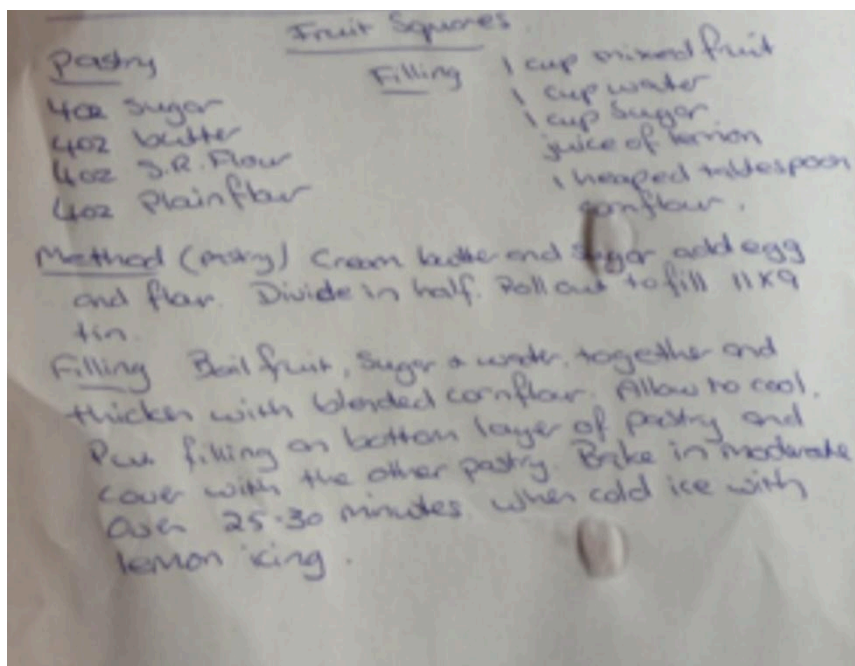 Fruit Squares
Pastry
4oz Sugar
4oz butter
4oz S.R. Flour
4oz Plain flour
Filling
1 cup mixed fruit
1 cup water
1 cup Sugar
juice of lemon
1 heaped tablespoon
cornflour.
Method (pastry) Cream butter and sugar add egg
and flour. Divide in half. Roll out to fill 11x9
tin.
Filling Boil fruit, Sugar & water, together and
thicken with blended cornflour. Allow to cool.
Put filling on bottom layer of pastry and
cover with the other pastry. Bake in moderate
oven 25-30 minutes. when cold ice with
lemon icing.